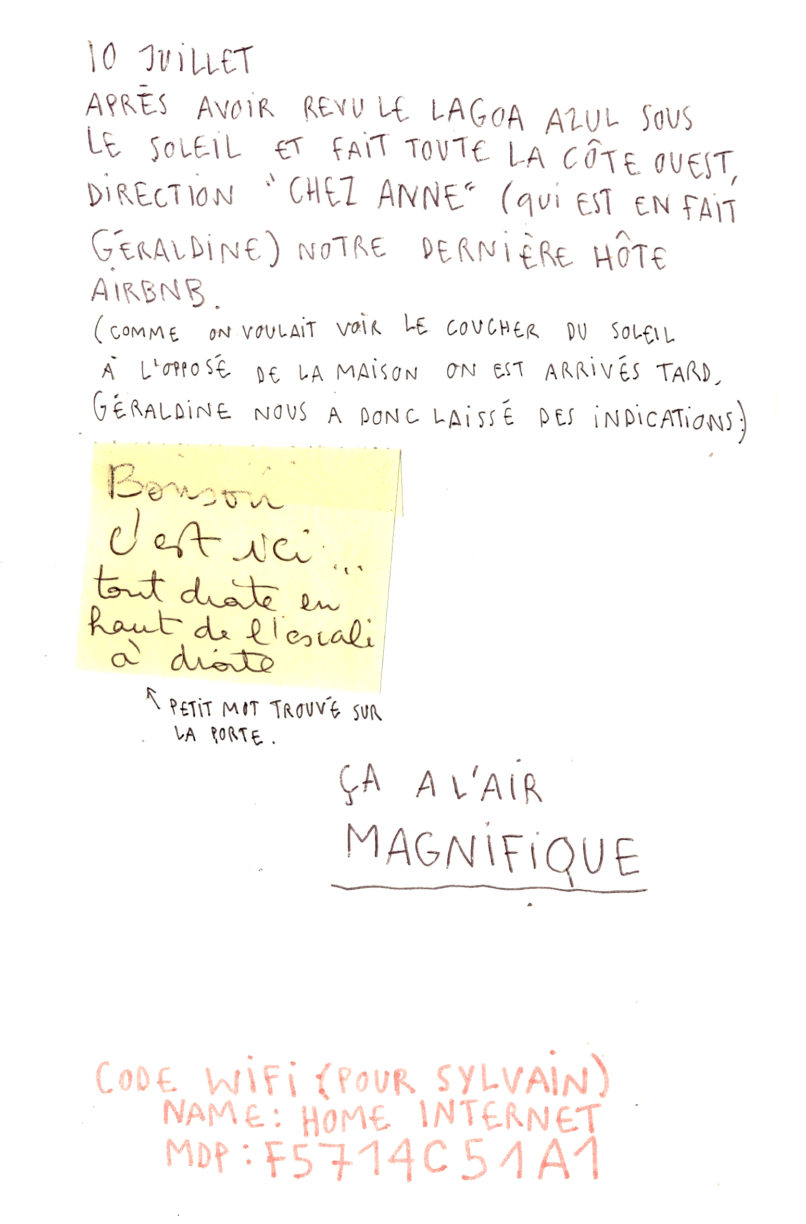 10 JUILLET
APRÈS AVOIR REVU LE LAGOA AZUL SOUS
LE SOLEIL ET FAIT TOUTE LA CÔTE OUEST,
DIRECTION "CHEZ ANNE" (QUI EST EN FAIT
GÉRALDINE) NOTRE DERNIÈRE HÔTE
AIRBNB.
(COMME ON VOULAIT VOIR LE COUCHER DU SOLEIL
À L'OPPOSÉ DE LA MAISON ON EST ARRIVÉS TARD,
GÉRALDINE NOUS A DONC LAISSÉ DES INDICATIONS:)
Bonsoir
c'est ici...
tout droite en
haut de l'escali
à droite
↖ PETIT MOT TROUVÉ SUR
LA PORTE.
ÇA A L'AIR
MAGNIFIQUE
CODE WIFI (POUR SYLVAIN)
NAME: HOME INTERNET
MDP: F5714C51A1